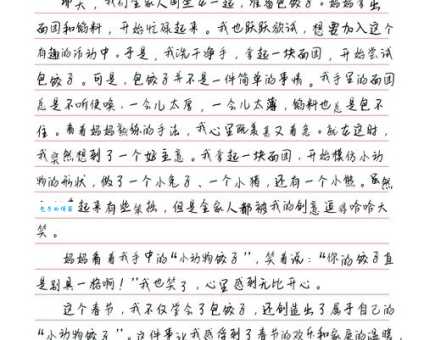 那天，我们全家人围坐在一起，准备包饺子。妈妈拿出
面团和馅料，开始忙碌起来。我也跃跃欲试，想要加入这个
有趣的活动中。于是，我洗干净手，拿起一块面团，开始尝试
包饺子。可是，包饺子并不是一件简单的事情。我手里的面团
总是不听使唤，一会儿太厚，一会儿太薄，馅料也总是包不
住。看着妈妈熟练的手法，我心里既羡慕又着急。就在这时，
我突然想到了一个好主意。我拿起一块面团，开始模仿小动
物的形状，做了一个小兔子、一个小猪，还有一个小熊。虽然
起来有些笨拙，但是全家人都被我的创意逗得哈哈大
笑。
妈妈看着我手中的“小动物饺子”，笑着说：“你的饺子真
是别具一格啊！”我也笑了，心里感到无比开心。
这个春节，我不仅学会了包饺子，还创造出了属于自己的
“小动物饺子”。这件事让我感受到了春节的欢乐和家庭的温暖，